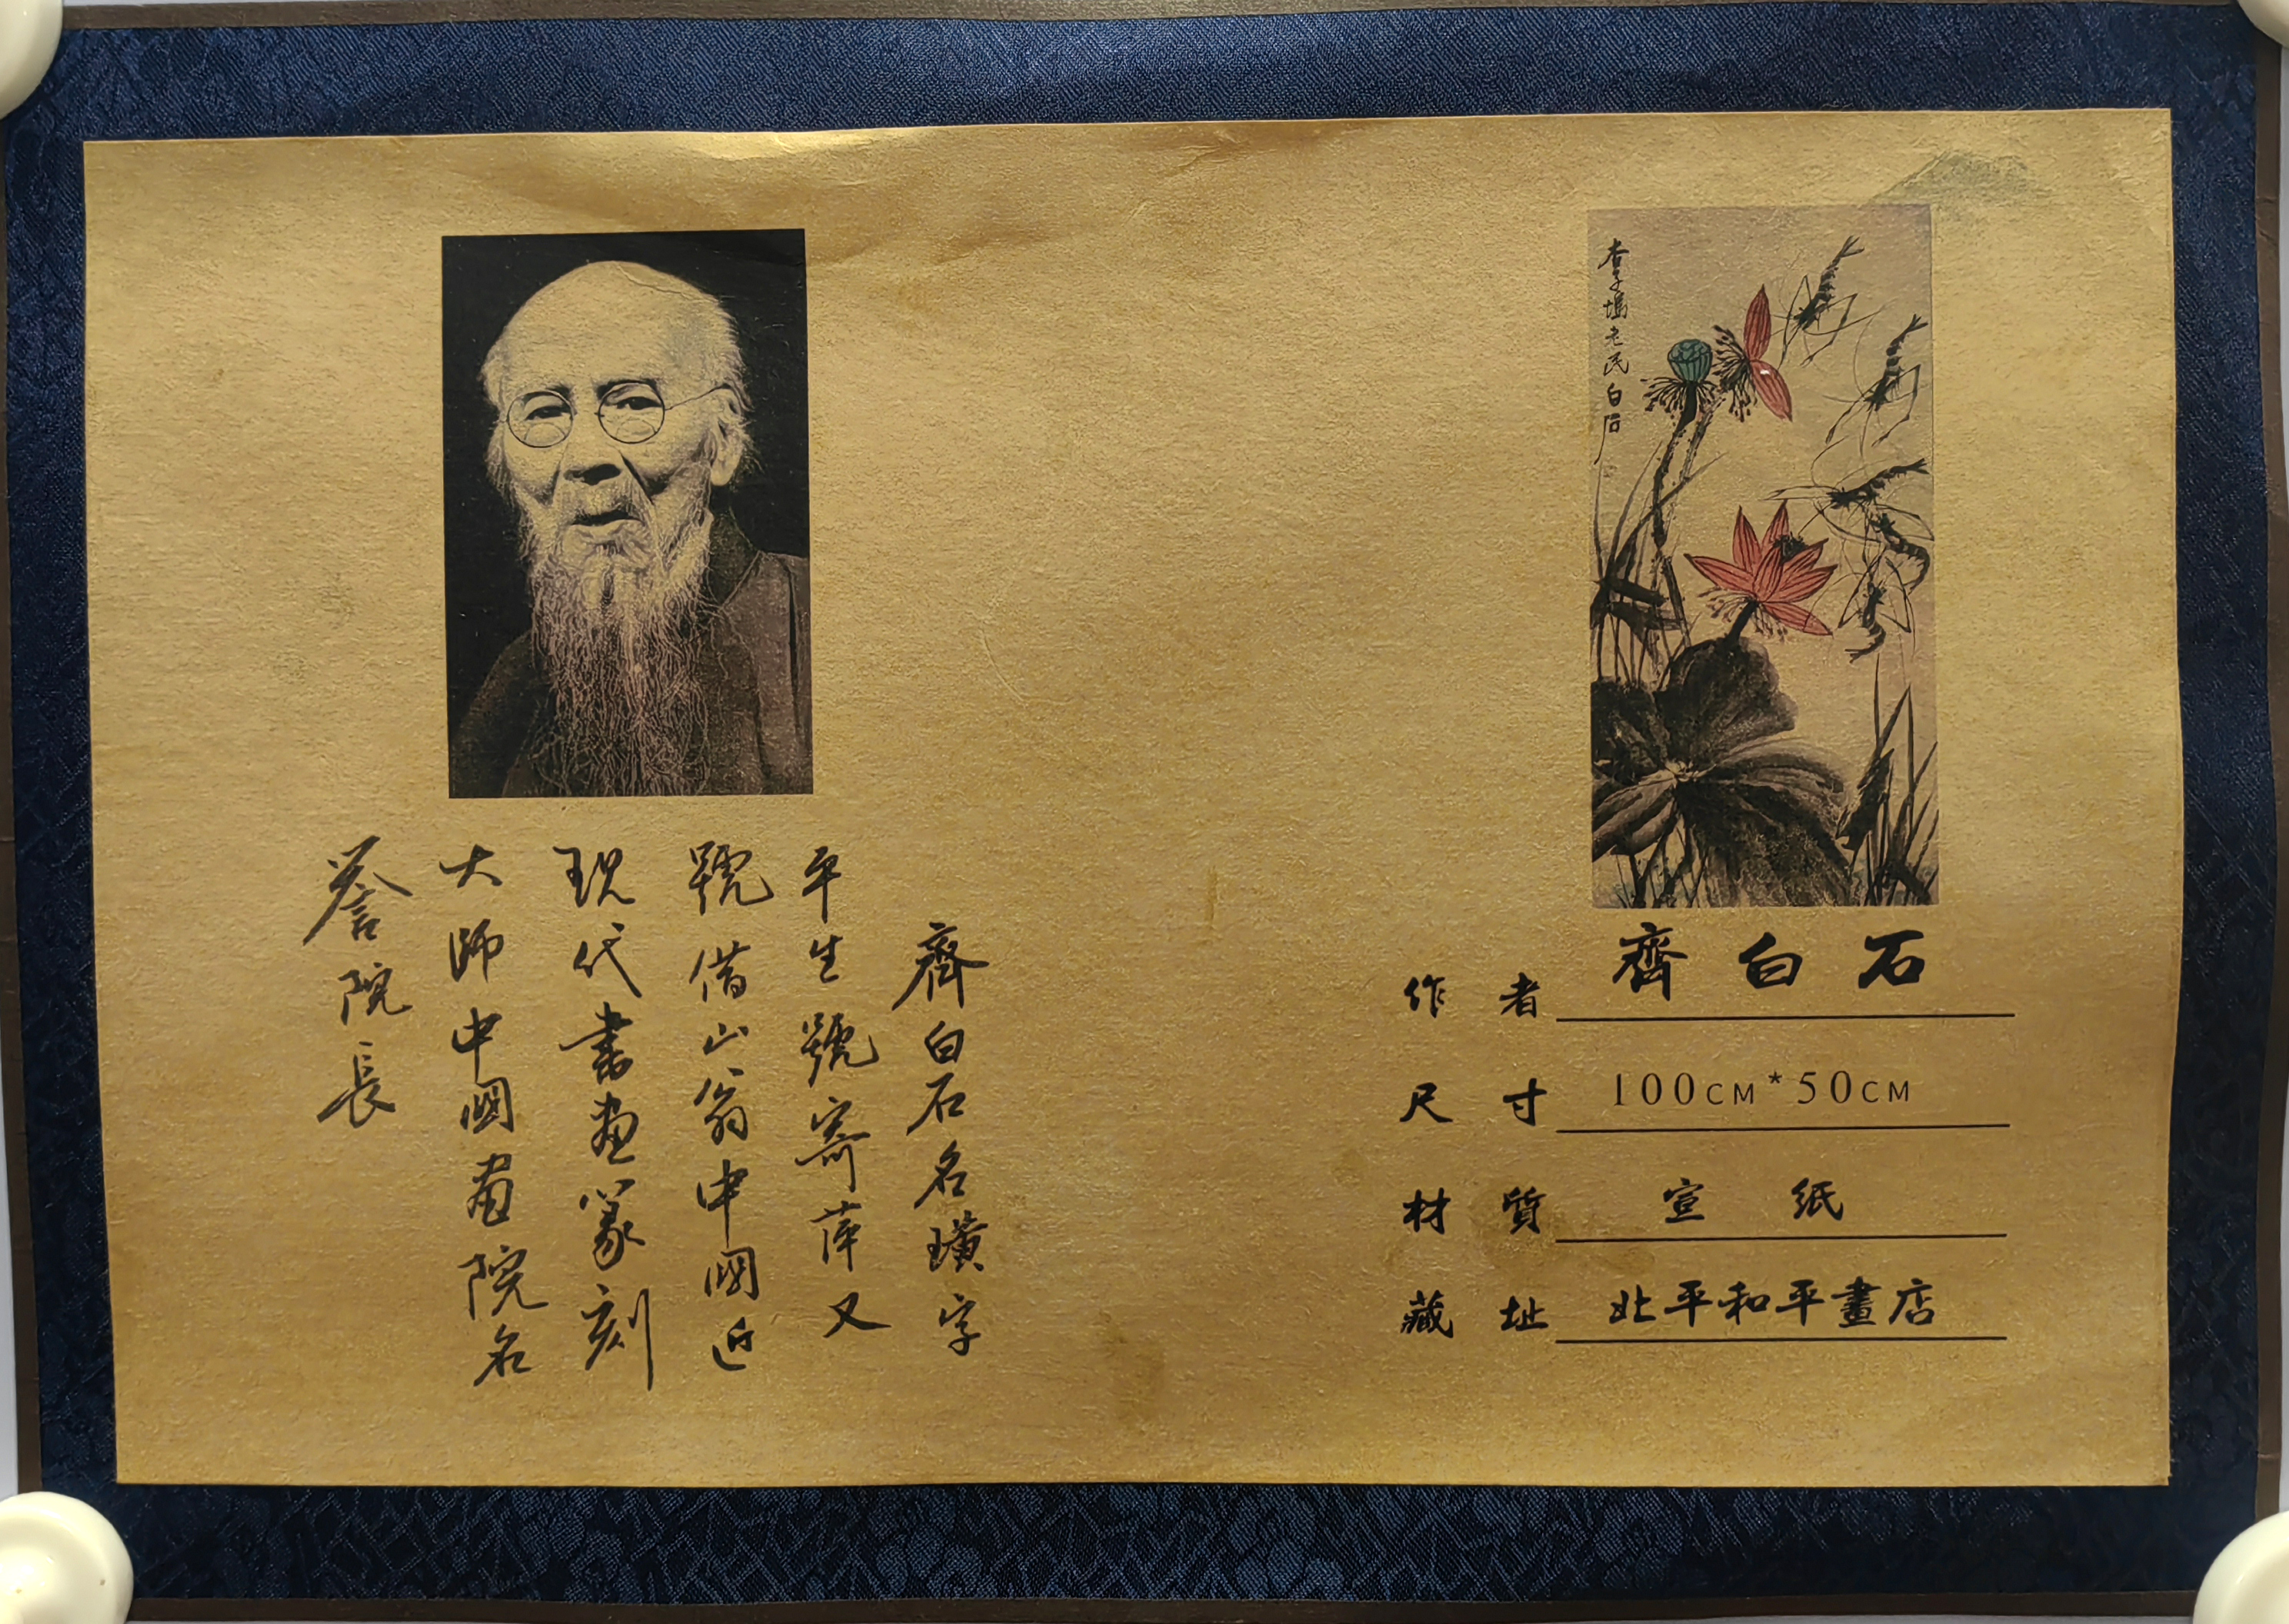 杏子塢老民白石
作者 齊白石
尺寸 100CM*50CM
材質 宣紙
藏址 北平和平畫店
齊白石名璜字
平生號寄萍又
號借山翁中國近
现代書画篆刻
大師中國畫院名
誉院長